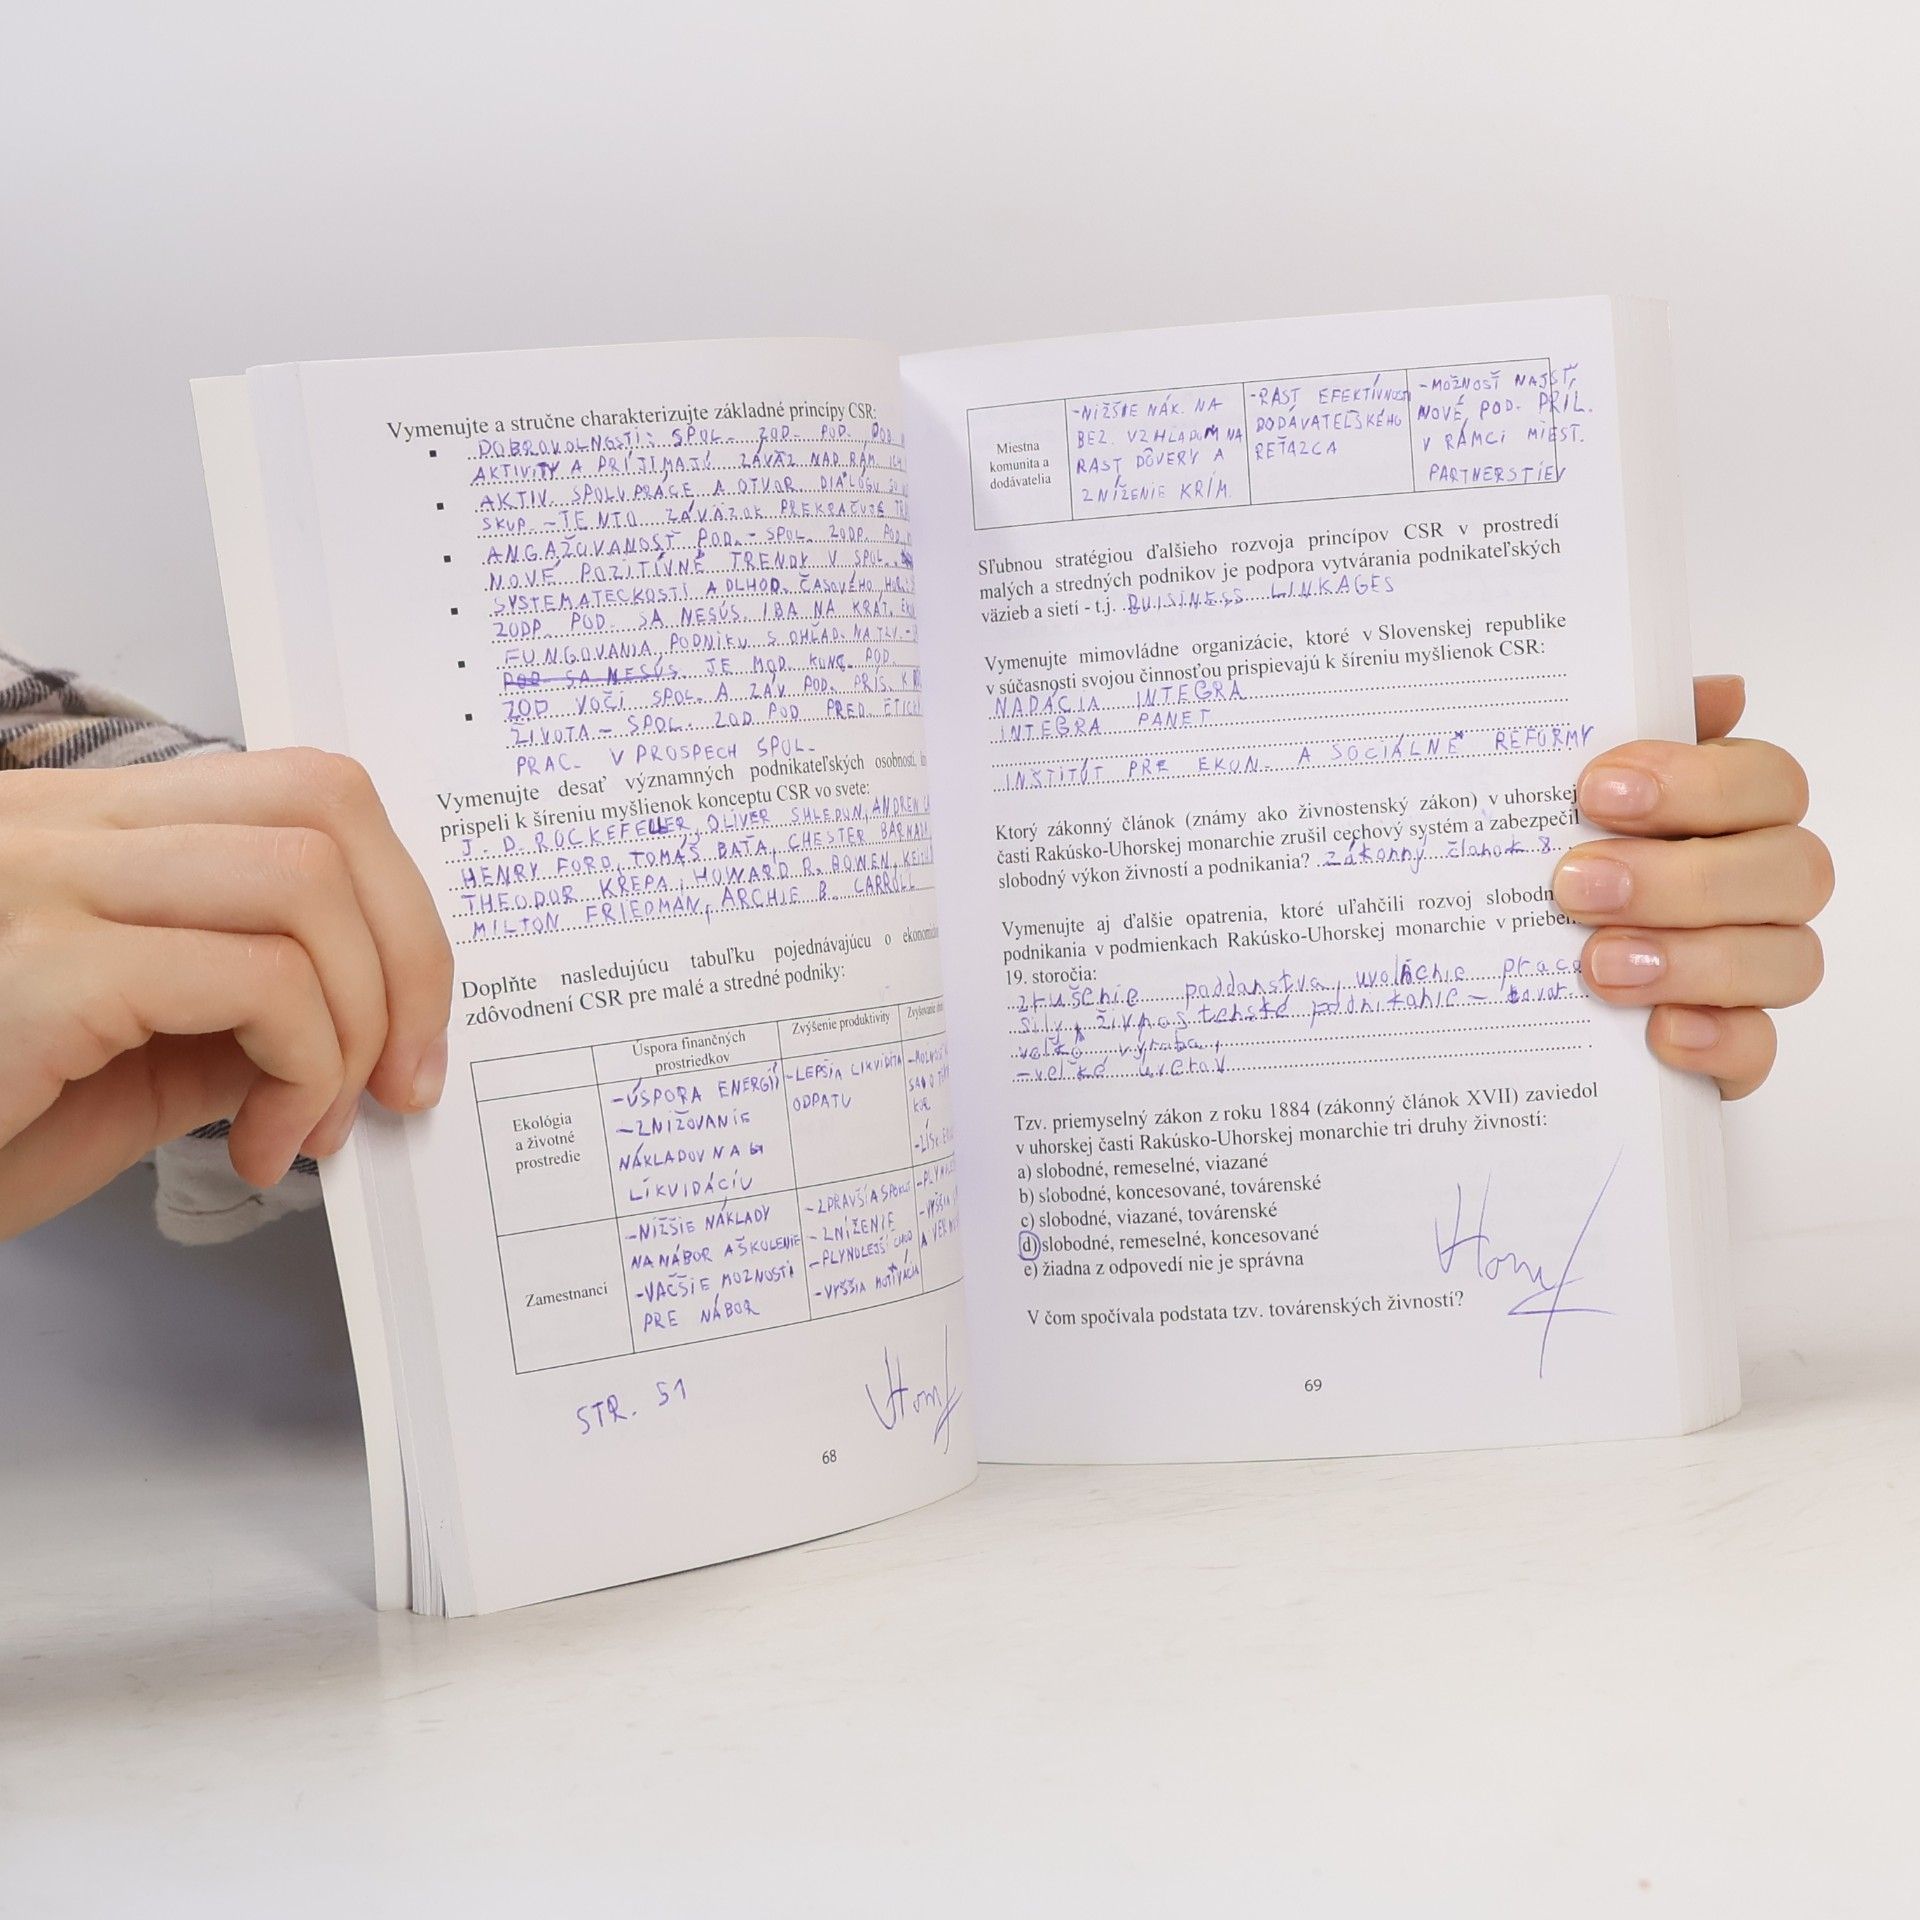 Vymenujte a stručne charakterizujte základné princípy CSR:
▪ DOBROVOLNOSTI: SPOL. ZOD. POD. DOB
AKTIVITY A PRÍJÍMAJÚ ZÁVÄZ NAD RÁM.
▪ AKTIV. SPOLUPRÁCE A OTVOR DIALÓGU
SKUP. – TENTO ZÁVÄZOK PREKRAČUJE
▪ ANGAŽOVANOSŤ POD. – SPOL. ZODP. POD.
NOVÉ POZITÍVNE TRENDY V SPOL.
▪ SYSTEMATECKOSTI A DLHOD. ČASOVÉHO HOR.
ZODP. POD. SA NESÚS. IBA NA KRÁT.
▪ FUNGOVANIA PODNIKU S OHĽAD. NA TZV.
POD. SA NESÚS JE MOD. KONC. POD.
▪ ZOD VOČI SPOL. A ZÁV POD. PRIS. K
ŽIVOTA – SPOL. ZOD POD PRED. ETICK
PRAC. V PROSPECH SPOL.
Vymenujte desať významných podnikateľských osobností,
prispeli k šíreniu myšlienok konceptu CSR vo svete:
J. D. ROCKEFELLER, OLIVER SHLEDON, ANDREW
HENRY FORD, TOMÁŠ BAŤA, CHESTER BARNAR
THEODOR KREPA, HOWARD R. BOWEN, KEITH
MILTON FRIEDMAN, ARCHIE B. CARROLL
Doplňte nasledujúcu tabuľku pojednávajúcu o
zdôvodnení CSR pre malé a stredné podniky:
Úspora finančných prostriedkov Zvýšenie produktivity Zvyšovanie
Ekológia a životné prostredie
-ÚSPORA ENERGIÍ
-ZNIŽOVANIE
NÁKLADOV NA
LIKVIDÁCIU
-LEPŠIA LIKVIDITA
ODPATU
Zamestnanci
-NIŽŠIE NÁKLADY
NA NÁBOR A ŠKOLENIE
-VAČŠIE MOZNOSTI
PRE NÁBOR
-ZDRAVŠÍ A SPOKOJ
-ZNIŽENIE
-PLYNULEJŠÍ CHOD
-VYŠŠIA MOTIVÁCIA
STR. 51
68
Miestna komunita a dodávatelia
-NIŽŠIE NÁK. NA
BEZ. VZHLADOM NA
RAST DÔVERY A
ZNÍŽENIE KRÍM.
-RAST EFEKTÍVNOSTI
DODÁVATEĽSKÉHO
REŤAZCA
-MOŽNOSŤ NÁJSŤ
NOVÉ POD. PRÍL.
V RÁMCI MIEST.
PARTNERSTIEV
Sľubnou stratégiou ďalšieho rozvoja princípov CSR v prostredí
malých a stredných podnikov je podpora vytvárania podnikateľských
väzieb a sietí - t.j. BUISINESS LINKAGES
Vymenujte mimovládne organizácie, ktoré v Slovenskej republike
v súčasnosti svojou činnosťou prispievajú k šíreniu myšlienok CSR:
NADÁCIA INTEGRA
INTEGRA PANET
INŠTITÚT PRE EKON. A SOCIÁLNE REFORMY
Ktorý zákonný článok (známy ako živnostenský zákon) v uhorskej
časti Rakúsko-Uhorskej monarchie zrušil cechový systém a zabezpečil
slobodný výkon živností a podnikania? zákonný článok 8
Vymenujte aj ďalšie opatrenia, ktoré uľahčili rozvoj slobodn
podnikania v podmienkach Rakúsko-Uhorskej monarchie v priebeh
19. storočia:
zrušenie poddanstva, uvolňenie praco
sily, živnostenské podnikanie – tovar.
velko výroba,
-velké úverov
Tzv. priemyselný zákon z roku 1884 (zákonný článok XVII) zaviedol
v uhorskej časti Rakúsko-Uhorskej monarchie tri druhy živností:
a) slobodné, remeselné, viazané
b) slobodné, koncesované, továrenské
c) slobodné, viazané, továrenské
d) slobodné, remeselné, koncesované
e) žiadna z odpovedí nie je správna
V čom spočívala podstata tzv. továrenských živností?
69